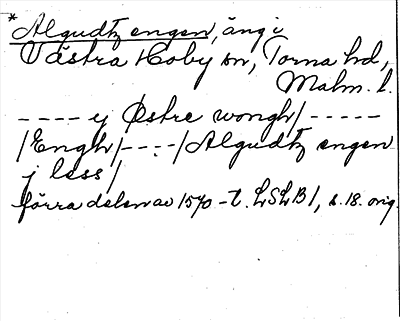 *Algudtz engen, äng i
Västra Hoby sn, Torna hd,
Malm. l.
---- ej Østre wongh/ -----
/Engh/---/Algudtz engen
j less/
förra delen av 1570-t. LSLB1, s. 18. orig.